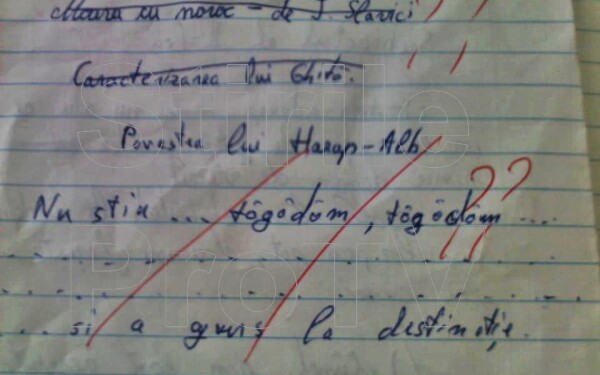 Moara cu noroc - de I. Slavici
Caracterizarea lui Ghiță.
Povestea lui Harap-Alb
Nu știu ... tögödöm, tögödöm ...
?? 
. . . . . . . . . . . . . . . . .
. . . . . . . . . . . . . . . . .
. . . și a ajuns la destinație.
Stirile
ProTV